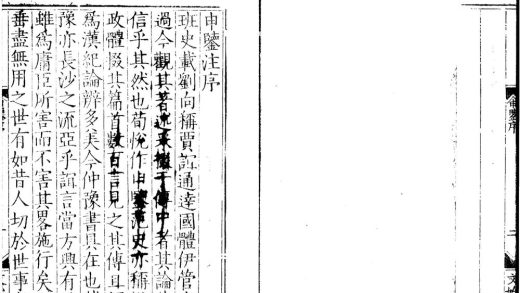 申鑒注序
班史載劉向稱賈誼通達國體伊管
過今觀其著述采掇于傳中者其論
信乎其然也荀悅作申鑒范史亦稱
政體掇其篇首數百言見之其傳且
爲漢紀論辨多美今仲豫書具在也
豫亦長沙之流亞乎誼言當方興有
雖爲庸臣所害而不害其畧施行矣
垂盡無用之世有如昔人切於世事